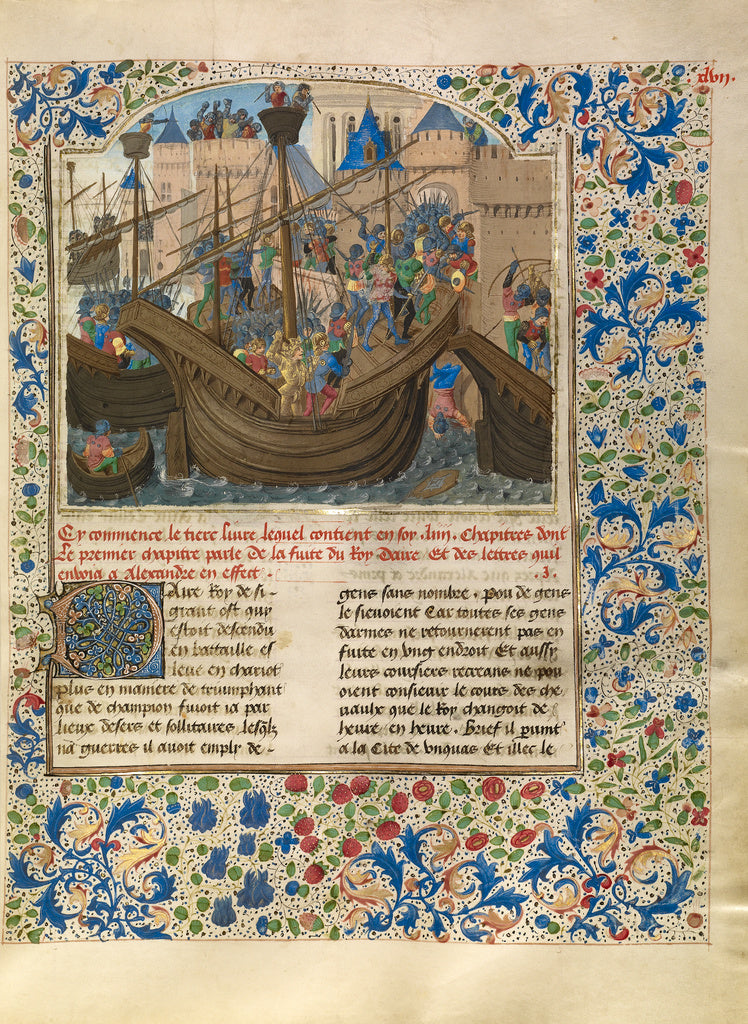 xlvij.
Cy commence le tiers livre lequel contient en soy .liiij. Chapitres dont
Le premier chapitre parle de la fuite du Roy Daire Et des lettres quil
envoia a Alexandre en effect. .I.
Daire Roy de si
grant ost quy
estoit descendu
en bataille es
leué en chariot
plus en maniere de triumphant
que de champion fuioit ia par
lieux desers et sollitaires lesqlz
na guerres il avoit emply de
gens sans nombre. pou de gens
le sievoient Car toutes ses gens
darmes ne retournerent pas en
fuite en vng endroit Et aussy
leurs coursiers recreans ne pou
oient consievir le cours des che
vaulx que le Roy changoit de
heure en heure. Brief il vint
a la Cite de vnquas Et illec le